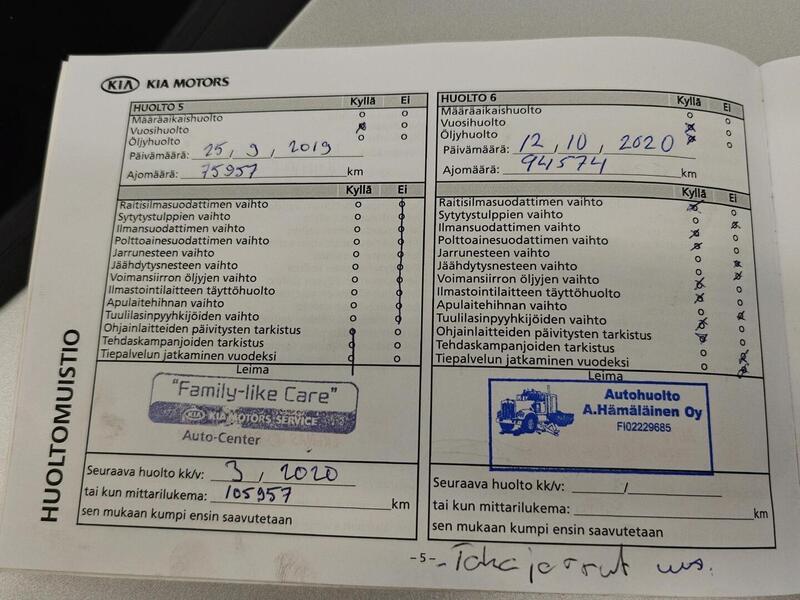 KIA KIA MOTORS
HUOLTOMUISTIO
HUOLTO 5 Kyllä Ei
Määräaikaishuolto
Vuosihuolto
Öljyhuolto
Päivämäärä: 25, 9, 2019
Ajomäärä: 75957 km
Kyllä Ei
Raitisilmasuodattimen vaihto
Sytytystulppien vaihto
Ilmansuodattimen vaihto
Polttoainesuodattimen vaihto
Jarrunesteen vaihto
Jäähdytysnesteen vaihto
Voimansiirron öljyjen vaihto
Ilmastointilaitteen täyttöhuolto
Apulaitehihnan vaihto
Tuulilasinpyyhkijöiden vaihto
Ohjainlaitteiden päivitysten tarkistus
Tehdaskampanjoiden tarkistus
Tiepalvelun jatkaminen vuodeksi
Leima
"Family-like Care"
KIA KIA MOTORS SERVICE
Auto-Center
Seuraava huolto kk/v: 3, 2020
tai kun mittarilukema: 105957 km
sen mukaan kumpi ensin saavutetaan
HUOLTO 6 Kyllä Ei
Määräaikaishuolto
Vuosihuolto
Öljyhuolto
Päivämäärä: 12, 10, 2020
Ajomäärä: 94574 km
Kyllä Ei
Raitisilmasuodattimen vaihto
Sytytystulppien vaihto
Ilmansuodattimen vaihto
Polttoainesuodattimen vaihto
Jarrunesteen vaihto
Jäähdytysnesteen vaihto
Voimansiirron öljyjen vaihto
Ilmastointilaitteen täyttöhuolto
Apulaitehihnan vaihto
Tuulilasinpyyhkijöiden vaihto
Ohjainlaitteiden päivitysten tarkistus
Tehdaskampanjoiden tarkistus
Tiepalvelun jatkaminen vuodeksi
Leima
Autohuolto
A.Hämäläinen Oy
FI02229685
Seuraava huolto kk/v: /
tai kun mittarilukema: km
sen mukaan kumpi ensin saavutetaan
-5-
Takajarrut